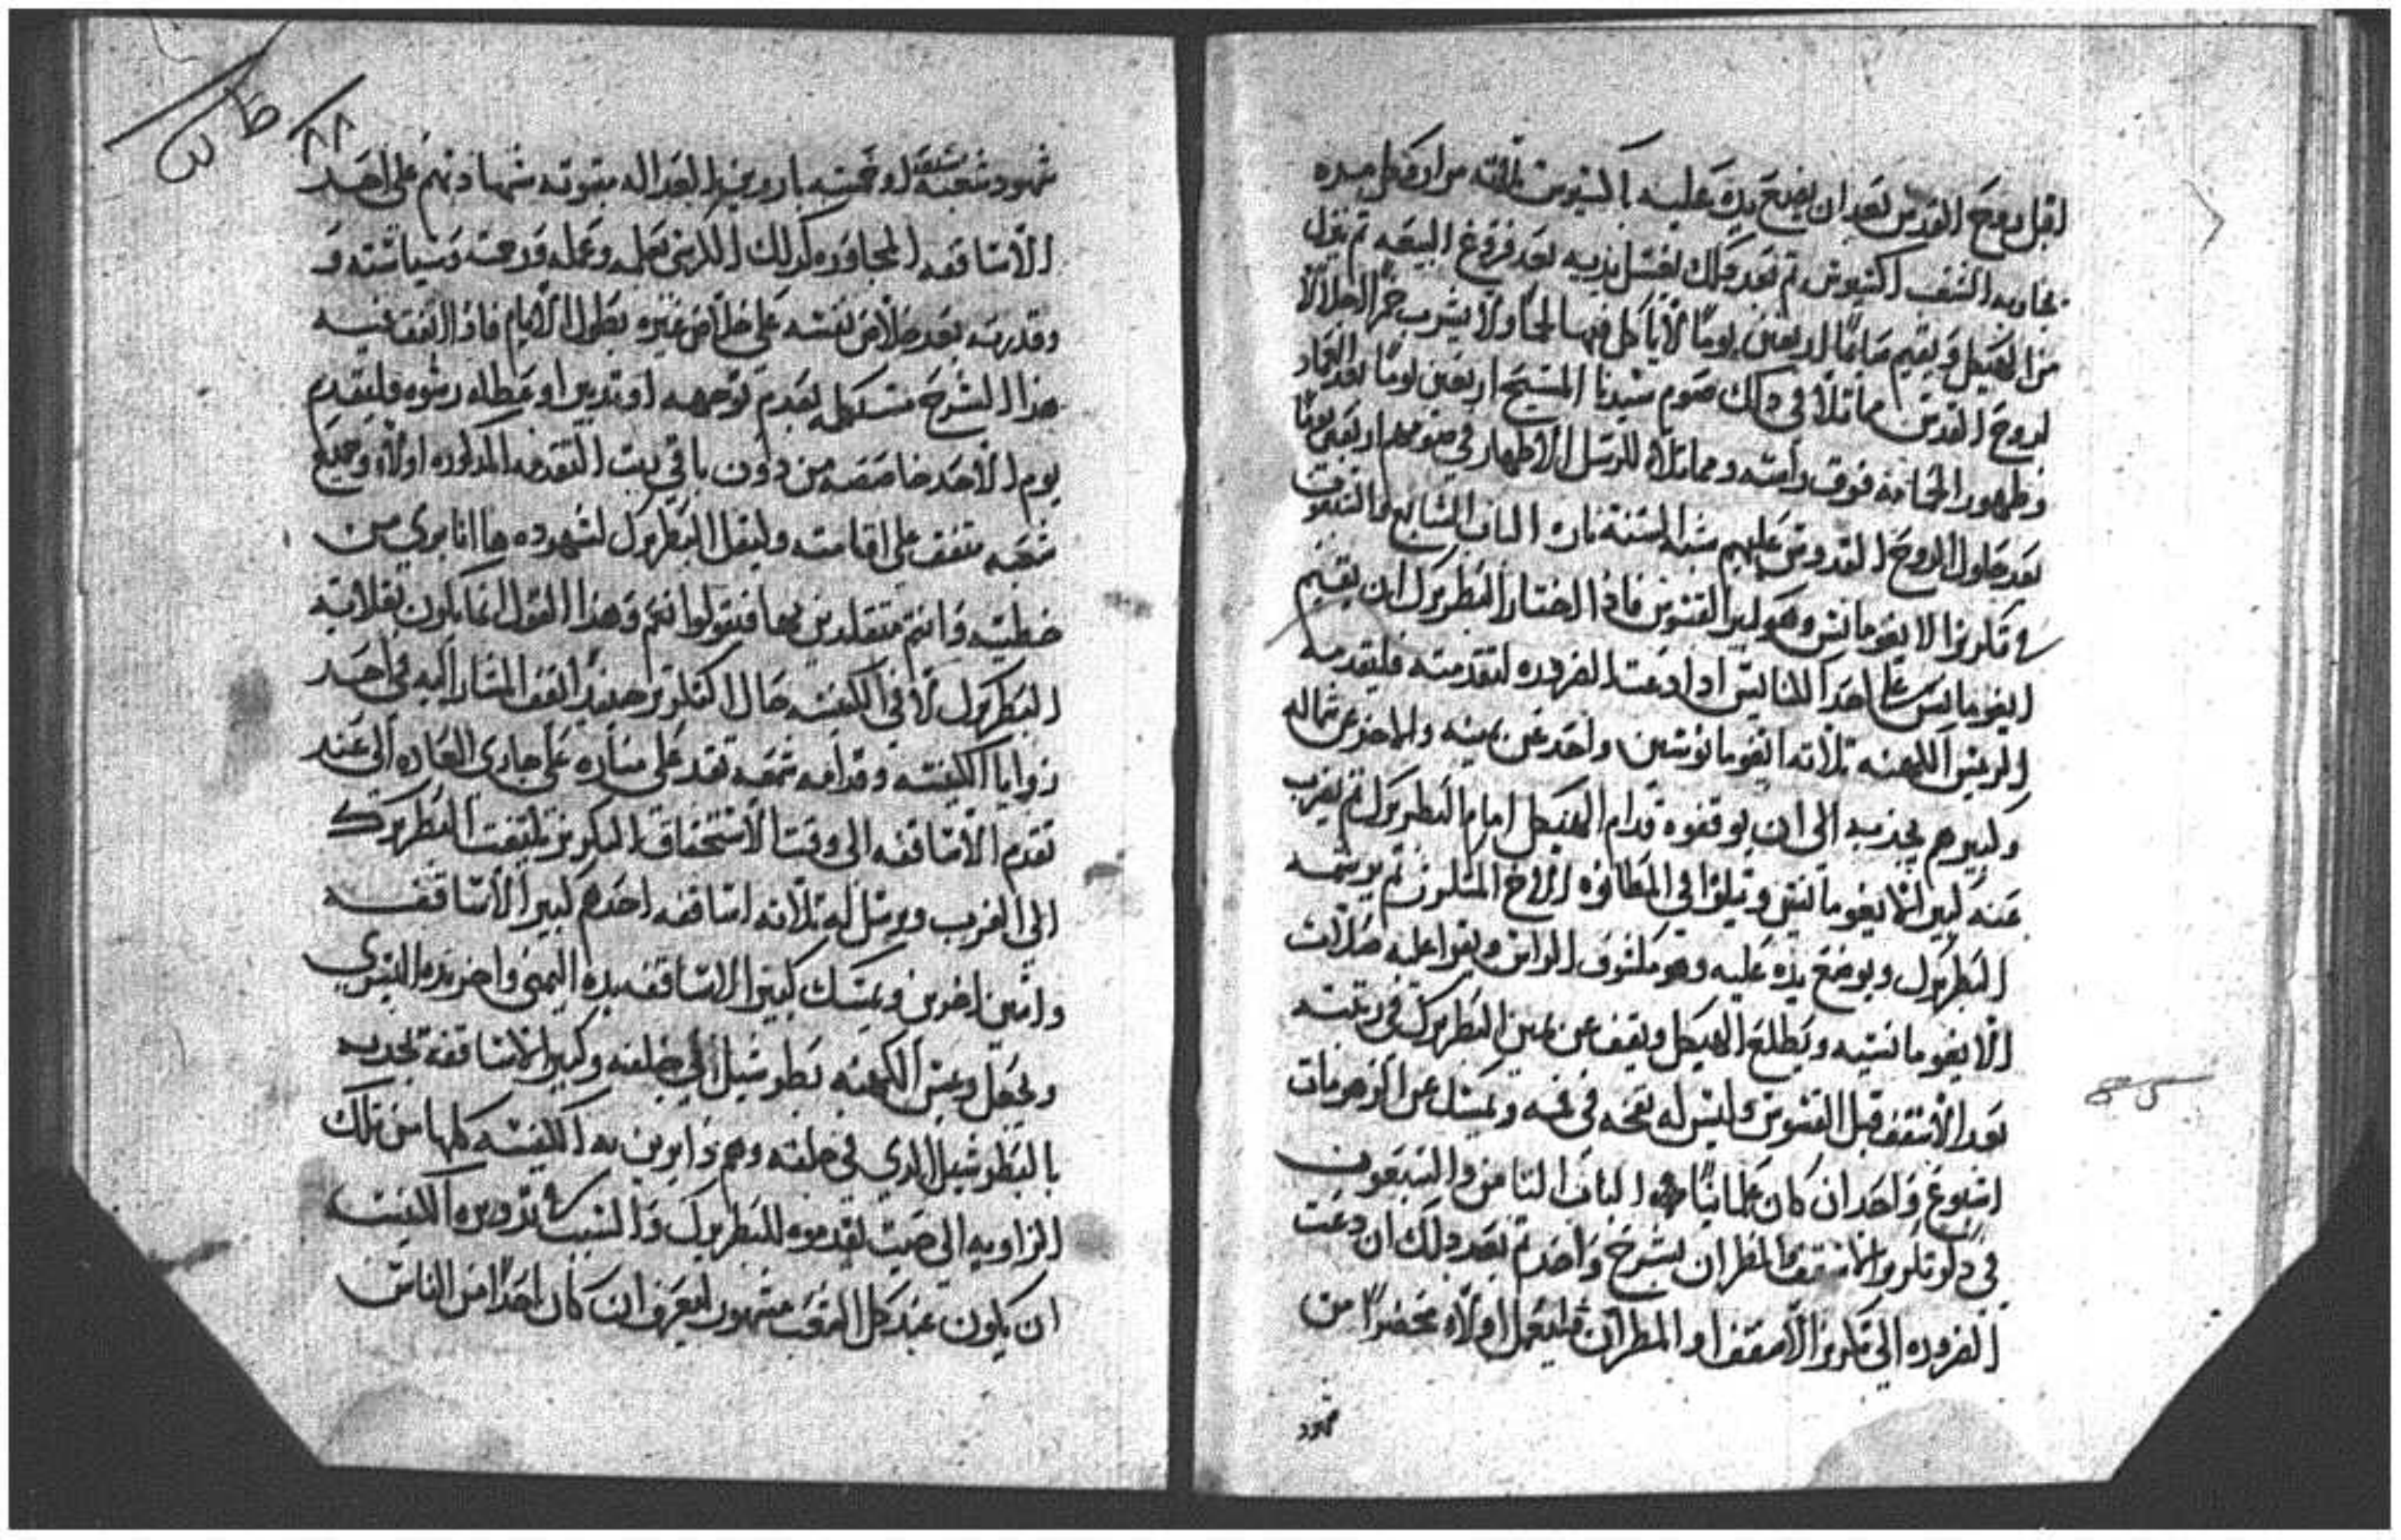 اقبل روح القدس بعد ان يضع يده عليه اكسيوس ثلاثه مرار وكل مره
يجاوبه الشعب اكسيوس ثم بعد ذلك يغسل يديه بعد فروغ البيعه ثم ينزل
من الهيكل ويقيم صايما اربعين يوما لا ياكل فيها لحما ولا يشرب خمرا اجلالا
لروح القدس مماثلا في ذلك صوم سيدنا المسيح اربعين يوما بعد العماد
وظهور الحمامه فوق راسه ومماثلا للرسل الاطهار في صومهم اربعين يوما
بعد حلول الروح القدوس عليهم شبه السنة نار الباب السابع والستعون
في تكريز الايغومانس وهو كبير القسوس فاذا اختار البطريرك ان يقيم
ايغومانس على احد الكنايس اذا دعت الضروره لتقدمته فليقدمه
الريس الكهنه ثلاثه ايغومانوسين واحد عن يمينه والاخر عن شماله
وكبيرهم يجذبه الى ان يوقفوه قدام الهيكل امام البطريرك ثم يضرب
عنه كبير الايغومانس ويتلوا في المطانوه الروح المثلون ثم يرشمه
البطريرك ويوضع يده عليه وهو مكشوف الراس ويقرا عليه صلاات
الايغومانسيه ويطلع الهيكل ويقف عن يمين البطريرك في رتبته
بعد الاسقف قبل القسوس وليس له نفخه في فمه ويمسك عن الزهومات
اسبوع واحد ان كان علمانيا الباب الثامن والتسعون
في ذكر تكريز الاسقف والمطران بشرح واحد ثم بعد ذلك ان دعت
الضروره الى تكريز الاسقف او المطران فليعمل اولاه محضرا من
شهود
شهود شعبه او محبته باروخيه العداله بثبوته شهادتهم على احد
الاساقفه المجاوره لذلك الكرسي بعلمه وعمله ورحمته وسياسته و
وقدرته بعد خلاص نفسه على خلاص غيره بطول الايام فاذا اتفق فيه
هذا الشرح مستكمل بعدم توجهه او تديين او عطاه رشوه فليقدم
يوم الاحد خاصه من دون باقي بيت التقدمه المذكوره اولاه وجميع
شعبه متفق على اقامته وليقل البطريرك لشهوده ها انا بري من
خطيته وانتم متقلدين بها فتقولوا نعم وهذا القول انما يكون بقلايته
البطريرك لا في الكنيسه حال التكريز حينيذ يقف المشار اليه في احد
زوايا الكنيسه وقدامه شمعه تقد على مناره على جاري العاده الى عند
تقدم الاساقفه الى وقت الاستحقاق التكريز يلتفت البطريرك
الى الغرب ويرسل له ثلاثه اساقفه احدهم كبير الاساقفه
واثنين اخرين ويمسك كبير الاساقفه يده اليمنى واخر يده اليسرى
ويجعل ريس الكهنه بطرشيل في حلقه وكبير الاساقفه يجذبه
بالبطرشيل الذي في حلقه وهم دايرين به الكنيسه كلها من تلك
الزاويه الى حيث يقدموه للبطريرك والسبب في تدويره الكنيسه
ان يكون عند كل الشعب مشهور ليعرف ان كان احدا من الناس